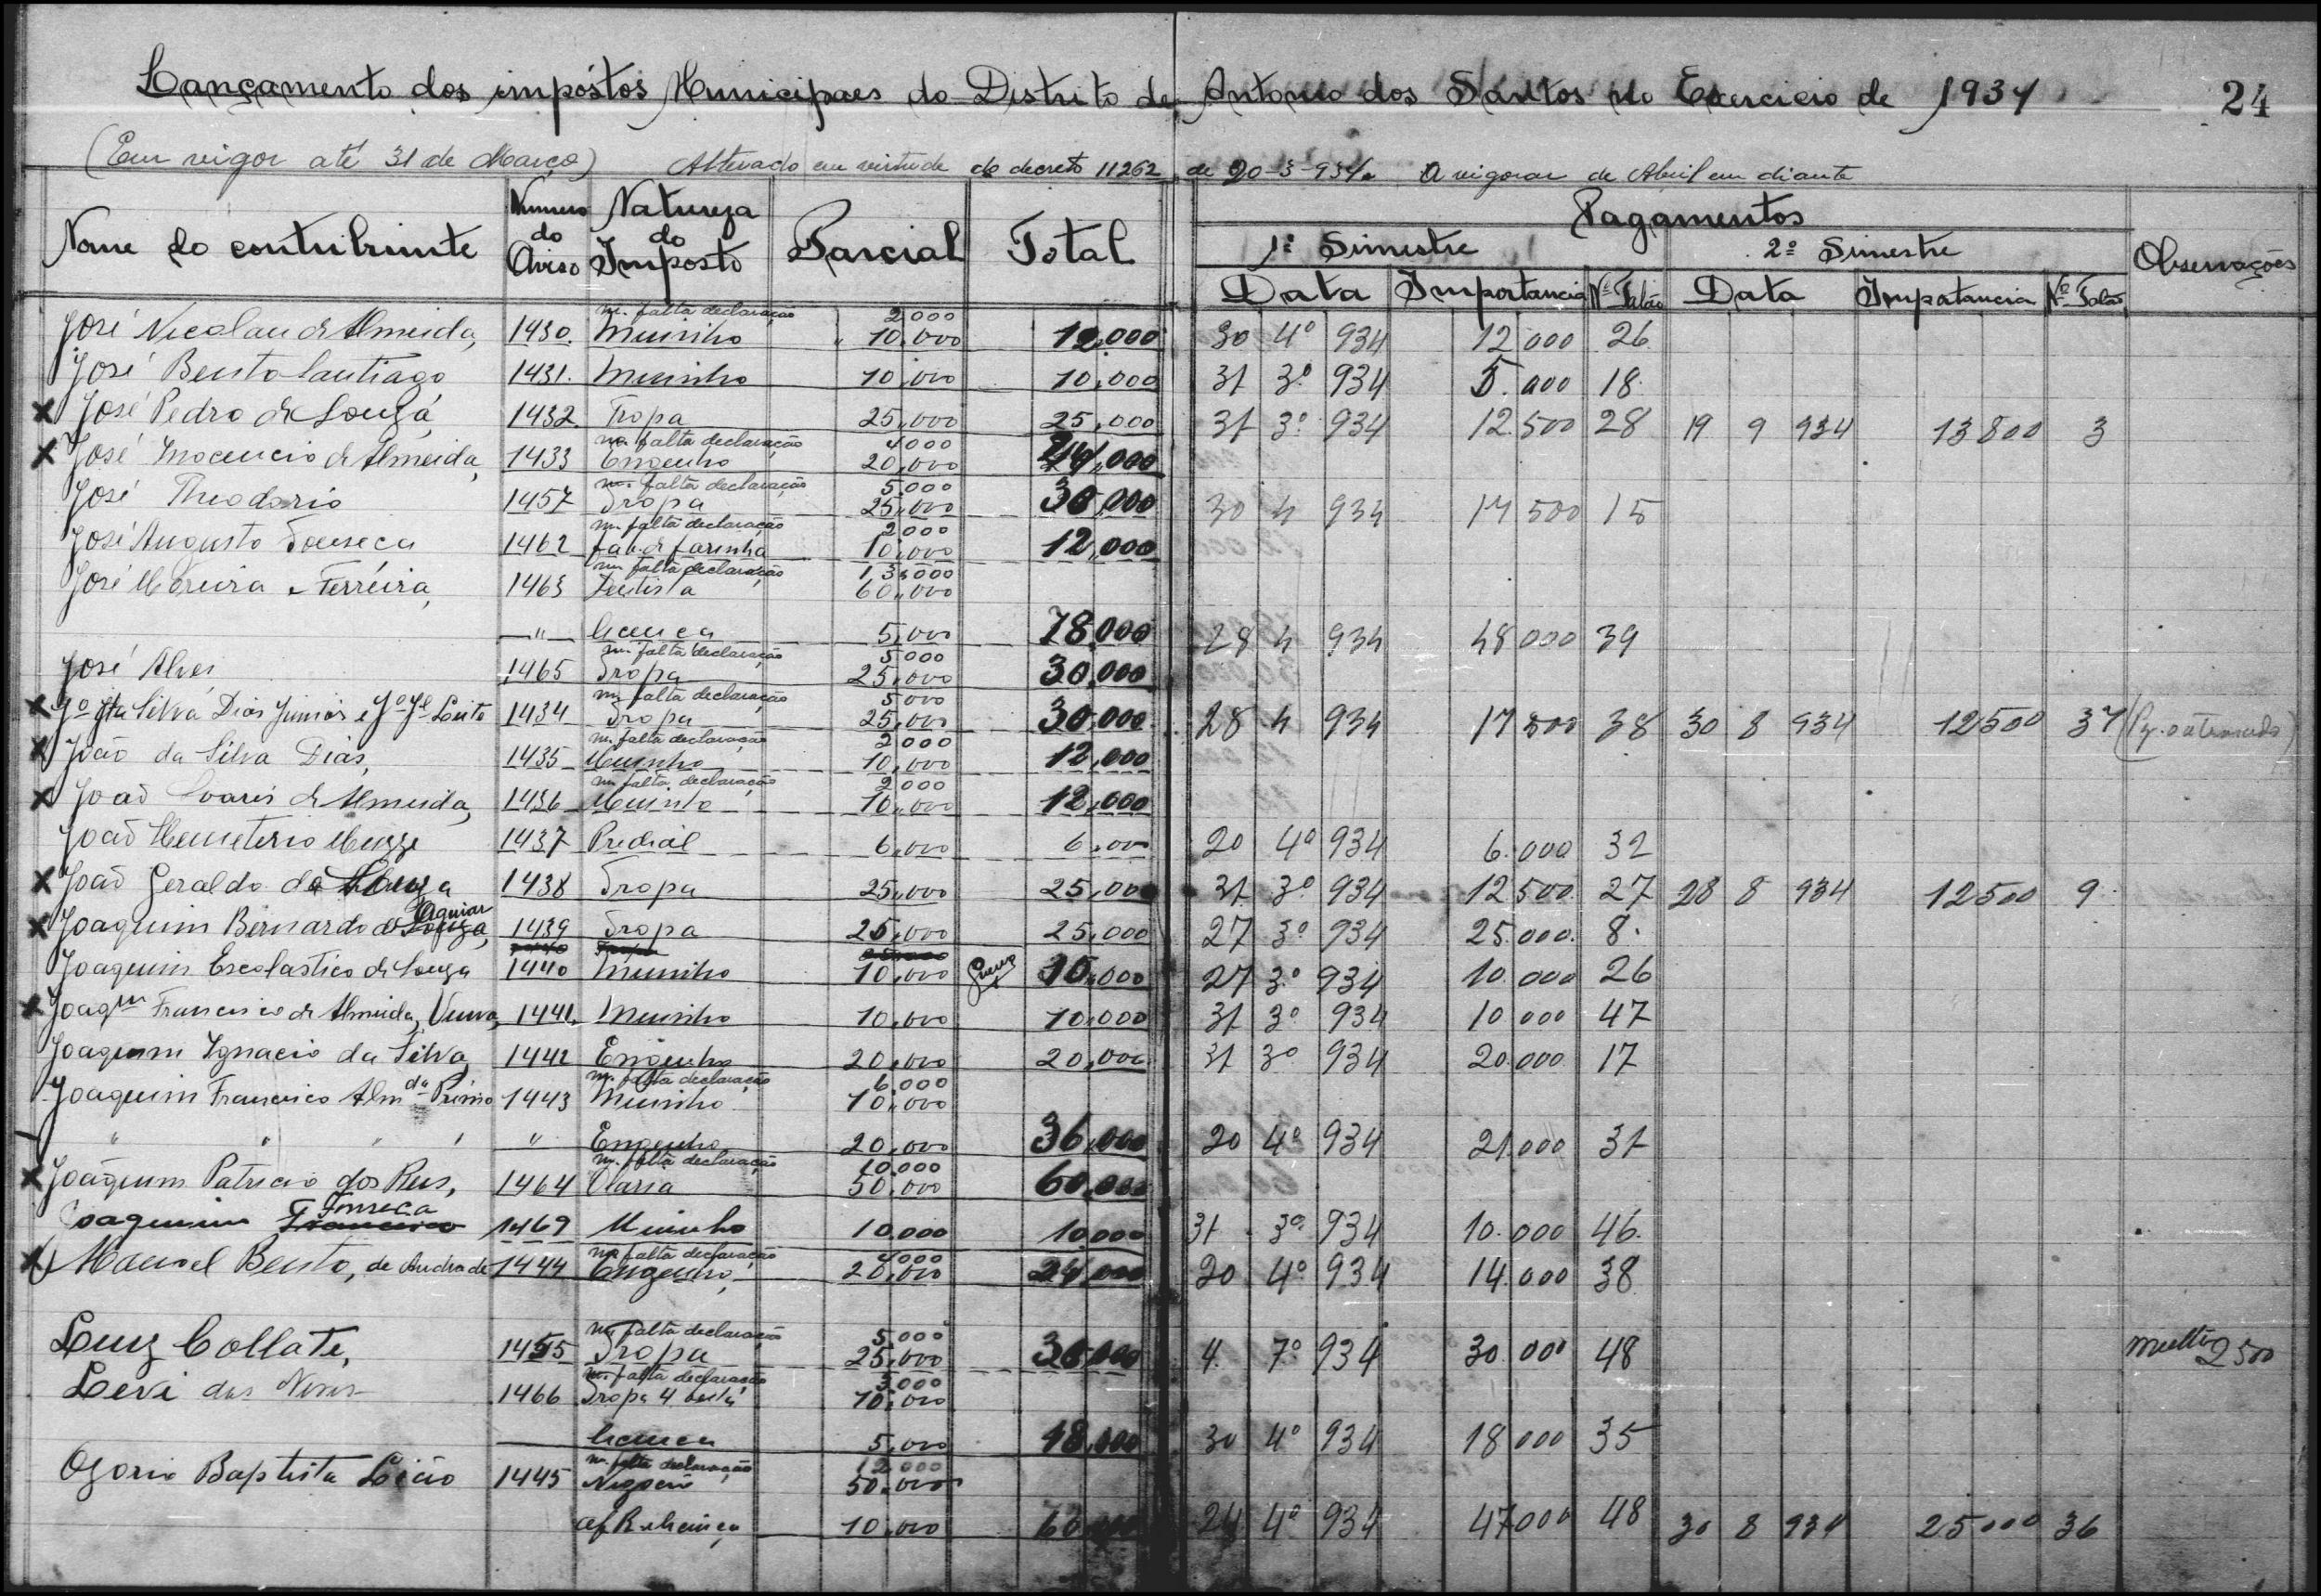 Lançamento dos impóstos Municipaes do Distrito de Antonio dos Santos no Exercicio de 1934 24
(Em vigor até 31 de Março) Alterado em virtude do decreto 11262 de 20-3-934. A vigorar de Abril em diante
Nome do contribuinte Numero do Aviso Natureza do Imposto Parcial Total Pagamentos Observações
1º Simestre 2º Simestre
Data Importancia Nº Talão Data Impotancia Nº Talão
m. falta declaração 2000
José Nicolau de Almeida, 1430. Muinho 10,000 12,000 30 4º 934 12 000 26
José Bento Santiago 1431. Muinho 10,000 10,000 31 3º 934 5.000 18
x José Pedro de Souza 1432. Tropa 25,000 25,000 31 3º 934 12.500 28 19 9 934 13 800 3
m. falta declaração 4000
x José Inocencio de Almeida, 1433 Engenho 20,000 24,000
m. falta declaração 5.000
José Theodorio 1457 Tropa 25,000 30,000 30 4 934 17 500 15
m. falta declaração 2000
José Augusto Fonseca 1462 fab. de farinha 10,000 12,000
m. falta declaração 13,000
José Moreira Ferreira, 1463 Dentista 60,000
" licença 5,000 78,000 28 4 934 48 000 39
m. falta declaração 5000
José Alves 1465 Tropa 25,000 30,000
m. falta declaração 5000
x Jº da Silva Dias Junior e Jº Jé Leite 1434 Tropa 25,000 30,000 28 4 934 17 500 38 30 8 934 12500 37
m. falta declaração 2000
x João da Silva Dias, 1435 Muinho 10,000 12,000
m. falta declaração 2000
x João Soares de Almeida, 1436 Muinho 10,000 12,000
João Hemeterio Muzzi 1437 Predial 6,000 6,000 20 4º 934 6.000 32
x João Geraldo de Souza 1438 Tropa 25,000 25,000 31 3º 934 12500 27 28 8 934 12500 9
Aguiar
x Joaquim Bernardo de Souza, 1439 Tropa 25,000 25,000 27 3º 934 25.000. 8.
Joaquim Escolastico de Souza 1440 Muinho 10,000 10,000 27 3º 934 10.000 26
x Joaqm Francisco de Almeida, Viuva, 1441. Muinho 10,000 10,000 31 3º 934 10 000 47
Joaquim Ignacio da Silva, 1442 Engenho 20,000 20,000 31 3º 934 20.000 17
m. falta declaração 6.000
Joaquim Francisco Almda Primo 1443 Muinho 10,000
" " " " " Engenho 20,000 36,000 20 4º 934 21.000 31
m. falta declaração 10.000
x Joaquim Patricio dos Reis, 1464 Olaria 50,000 60,000
Fonseca
Joaquim Francisco 1469 Muinho 10.000 10,000 31 3º 934 10.000 46.
m. falta declaração 4000
x Manoel Bento, de Andrade 1444 Engenho, 20,000 24,000 20 4º 934 14.000 38
m. falta declaração 5.000
Luiz Collate, 1455 Tropa 25,000 30,000 4. 7º 934 30.000 48 multa 2500
m. falta declaração 3.000
Levi das Neves 1466 Tropa 4 10,000
licença 5,000 18,000 30 4º 934 18 000 35
m. falta declaração 12000
Ozorio Baptista Leão 1445 Negocio 50,000
10,000 24 4º 934 47000 48 30 8 934 25000 36